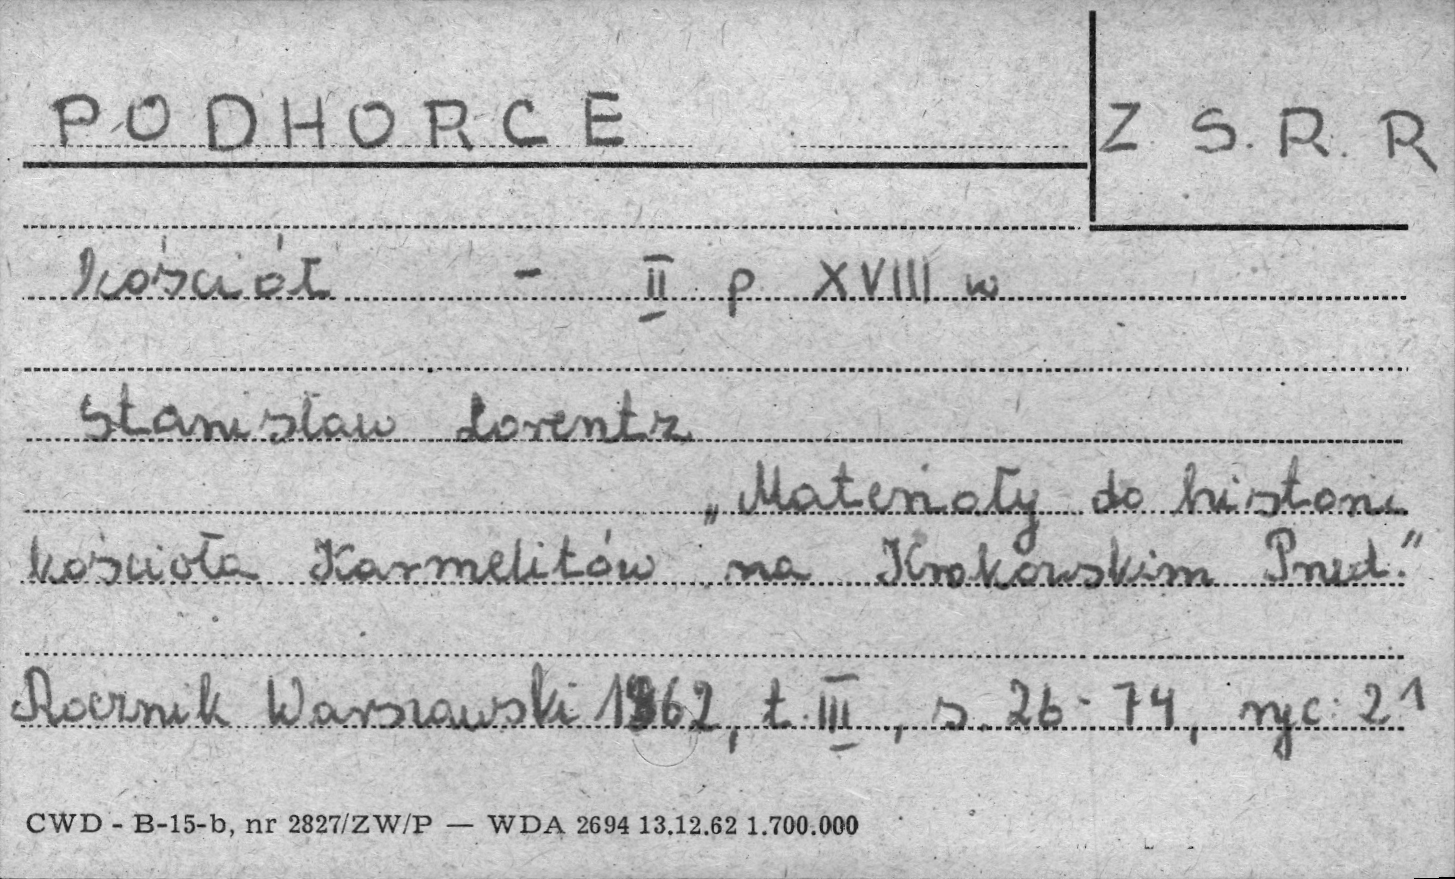 PODHORCE Z.S.R.R
kościół - II p XVIII w
Stanisław Lorentz
„Materiały do historii
kościoła Karmelitów na Krakowskim Przed."
Rocznik Warszawski 1962, t. III, s. 26-74, ryc. 21
CWD - B-15-b, nr 2827/ZW/P — WDA 2694 13.12.62 1.700.000